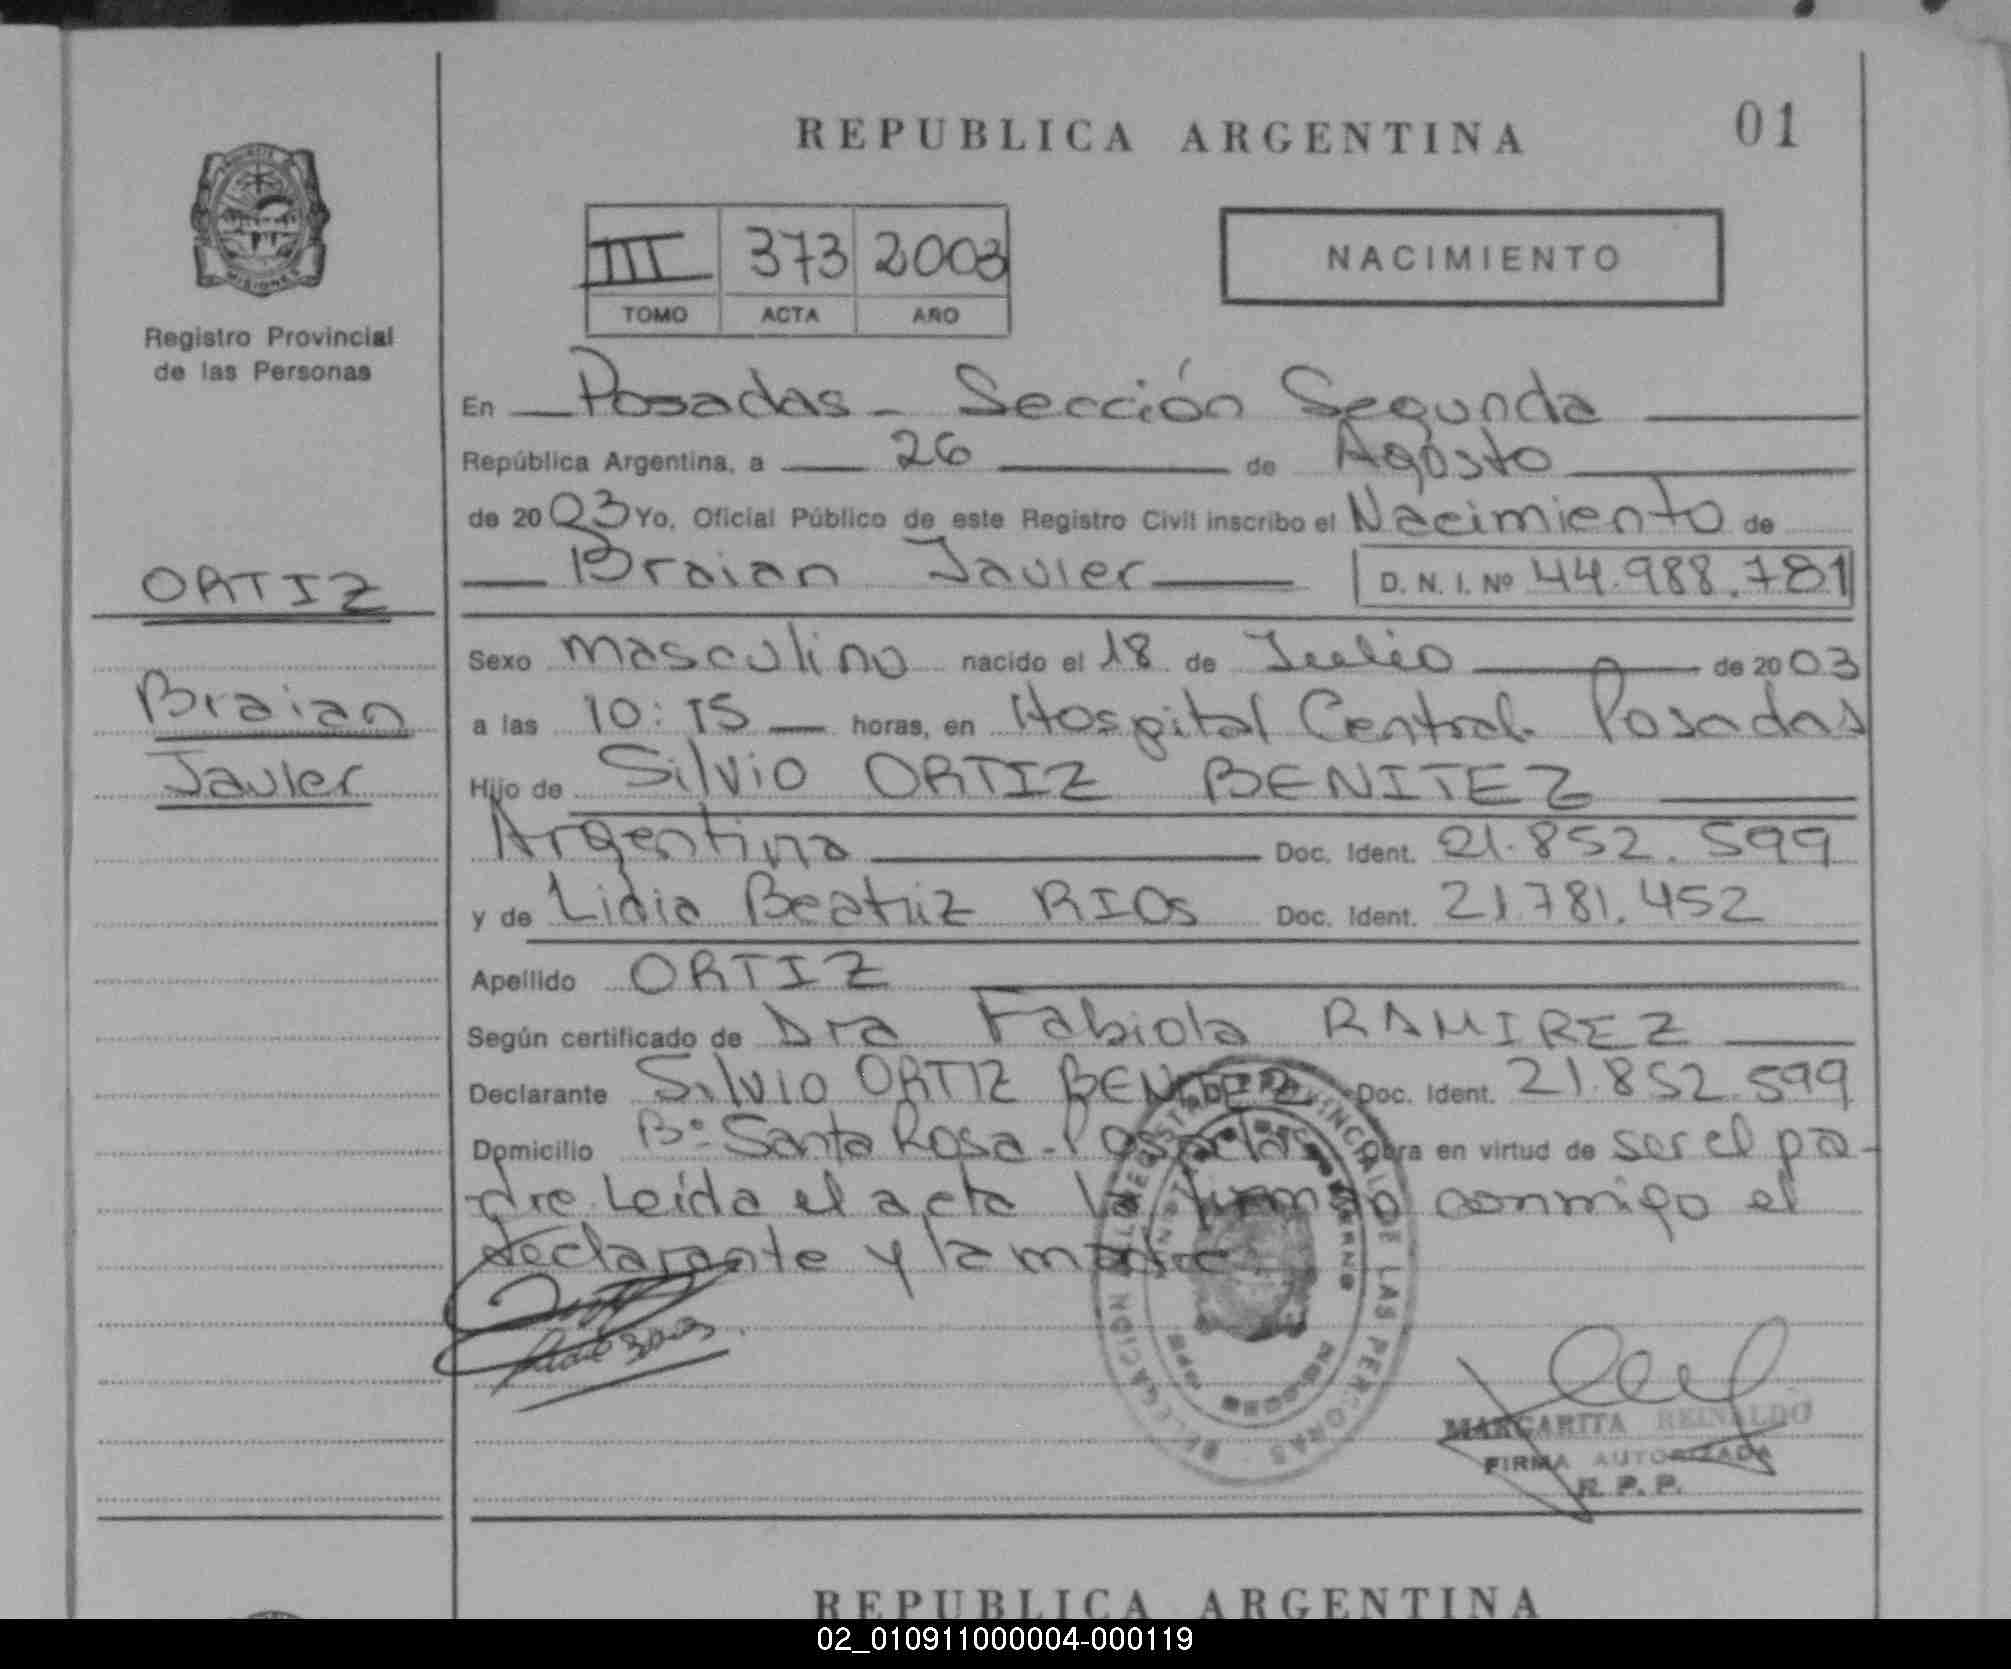 REPUBLICA ARGENTINA
01
III 373 2003
TOMO ACTA AÑO
NACIMIENTO
Registro Provincial
de las Personas
ORTIZ
Braian
Javier
En Posadas - Sección Segunda
República Argentina, a 26 de Agosto
de 2003 Yo, Oficial Público de este Registro Civil inscribo el Nacimiento de
Braian Javier D. N. I. Nº 44.988.781
Sexo masculino nacido el 18 de Julio de 2003
a las 10:15 horas, en Hospital Central Posadas
Hijo de Silvio ORTIZ BENITEZ
Argentina Doc. Ident. 21.852.599
y de Lidia Beatriz RIOS Doc. Ident. 21.781.452
Apellido ORTIZ
Según certificado de Dra Fabiola RAMIREZ
Declarante Silvio ORTIZ BENITEZ Doc. Ident. 21.852.599
Domicilio Bº Santa Rosa - Posadas Obra en virtud de ser el pa-
dre. Leída el acta la firman conmigo el
declarante y la madre
MARGARITA REINALDO
FIRMA AUTORIZADA
R. P. P.
REPUBLICA ARGENTINA
02_010911000004-000119